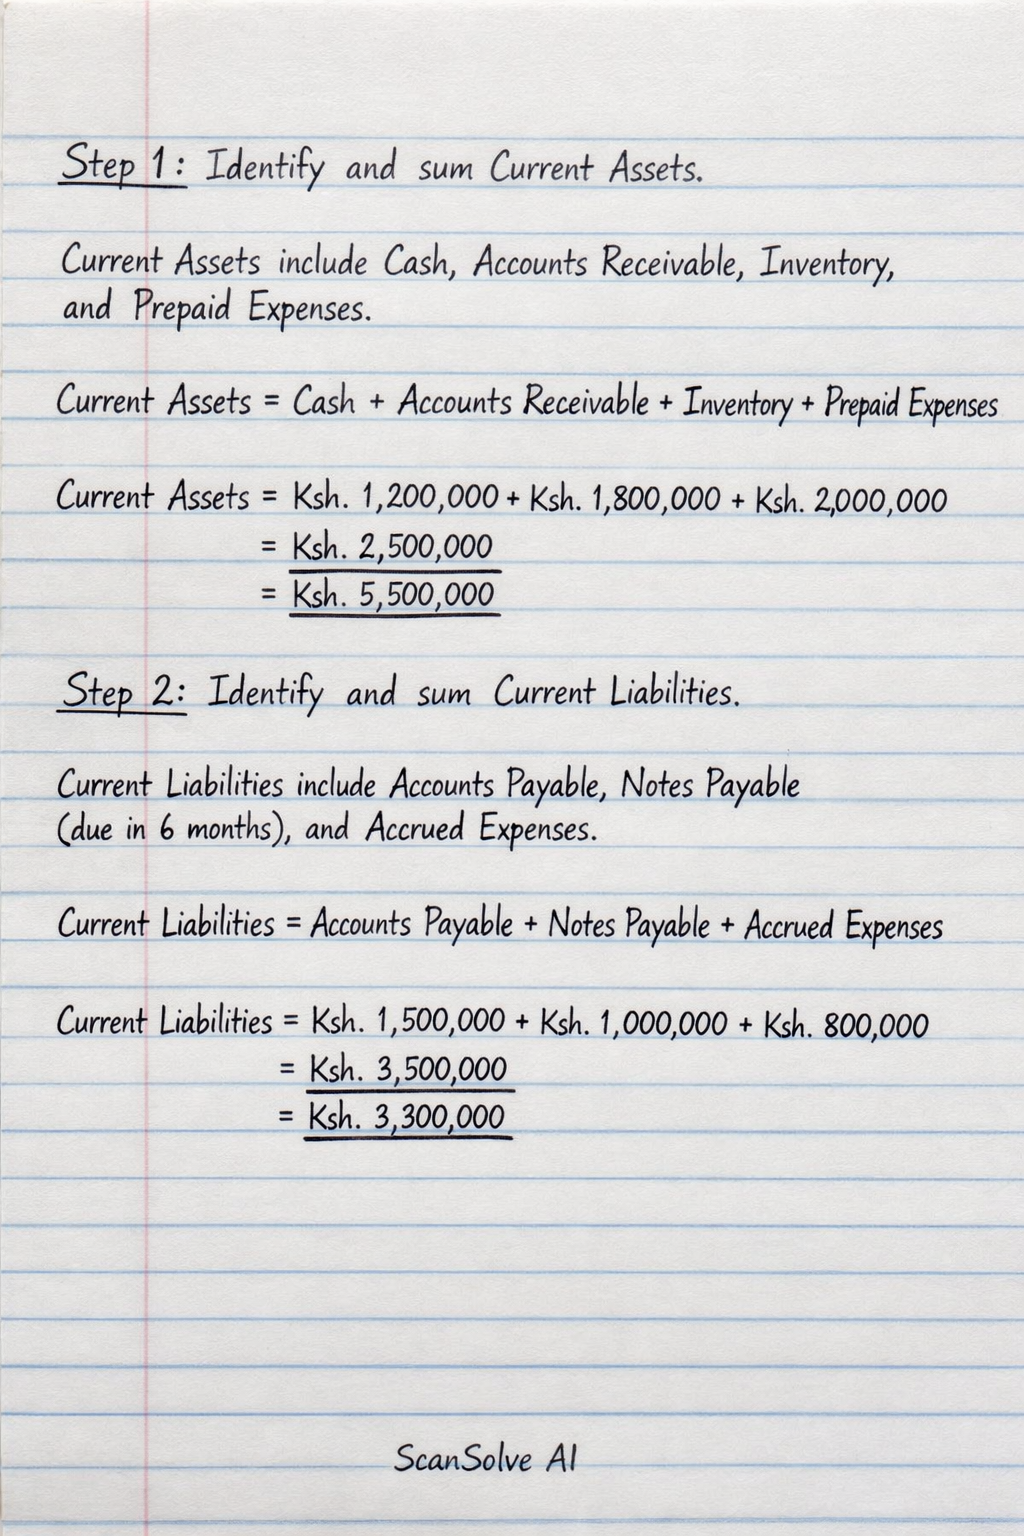 Step 1: Identify and sum Current Assets.
Current Assets include Cash, Accounts Receivable, Inventory,
and Prepaid Expenses.
Current Assets = Cash + Accounts Receivable + Inventory + Prepaid Expenses
Current Assets = Ksh. 1,200,000 + Ksh. 1,800,000 + Ksh. 2,000,000
= Ksh. 2,500,000
= Ksh. 5,500,000
Step 2: Identify and sum Current Liabilities.
Current Liabilities include Accounts Payable, Notes Payable
(due in 6 months), and Accrued Expenses.
Current Liabilities = Accounts Payable + Notes Payable + Accrued Expenses
Current Liabilities = Ksh. 1,500,000 + Ksh. 1,000,000 + Ksh. 800,000
= Ksh. 3,500,000
= Ksh. 3,300,000
ScanSolve AI